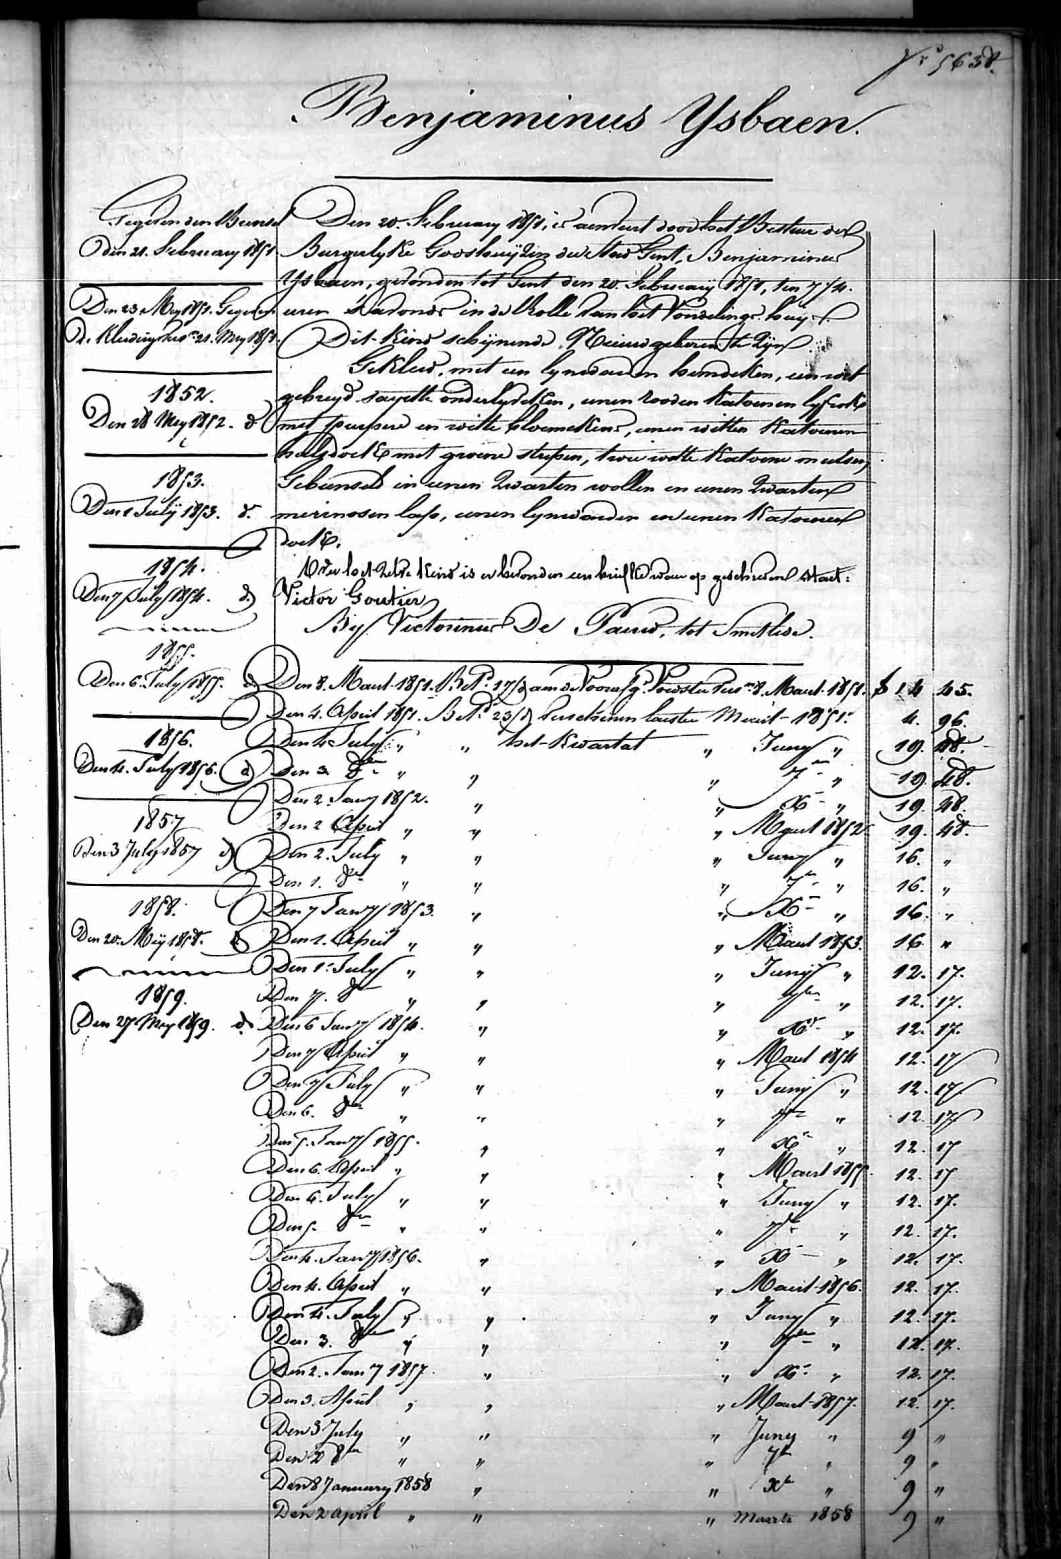 N.° 5638.
Benjaminus Ysbaen.
Gegeven den Bunsel
Den 21. February 1851
Den 23 Mey 1851. Gegeven
de Kleeding van 21. Mey 1851.
1852.
Den 28 Mey 1852. d.
1853.
Den 1 Julÿ 1853. d.
1854.
Den 7 July 1854. d.
1855.
Den 6. July 1855. d.
1856.
Den 4. July 1856. d
1857
Den 3 July 1857 d
1858.
Den 20. Meÿ 1858. d
1859.
Den 27 Mey 1859. d.
Den 20. February 1851, is aenveert door het Bestuer der
Burgerlyke Godshuyzen der Stad Gent, Benjaminus
Ysbaen, gevonden tot Gent den 20. February 1851, ten 7 1/4.
uren s'avonds in de Rolle van het Vondelinge huys.
Dit Kind schynende Nieuwgeboren te zyn
Gekleed, met een lynwaeden hemdeken, een wit
gebreyd sayette onderlyfken, eenen rooden katoenen lyfrok
met purpere en witte bloemekens, eenen witten katoenen
halsdoek met groene strepen, twee witte katoene mutsen,
Gebunseld in eenen zwarten wollen en eenen zwarten
merinosen lap, eenen lynwaeden en eenen katoenen
doek.
Op het zelve kind is er bevonden een briefke waer op geschreven staet:
Victor Goutier
By Victorinus De Pauw, tot Smetlede.
Den 8. Maert 1851. Bet. 17/ aen de Voorsz. Voedster 8. Maert 1851. f 14 45.
Den 4. April 1851. Bet. 23/ Maert 1851. 4. 96.
Den 4 July " " het Kwartael " Juny " 19. 48.
Den 3 8bre " " " 7bre " 19. 48.
Den 2 Jany 1852. " " Xbre " 19. 48.
Den 2 April " " " Maert 1852 19. 48.
Den 2. July " " " Juny " 16. "
Den 1. 8bre " " " 7bre " 16. "
Den 7 Jany 1853. " " Xbre " 16. "
Den 1. April " " " Maert 1853. 16. "
Den 1. July " " " Junÿ " 12. 17.
Den 7. 8bre " " " 7bre " 12. 17.
Den 6 Jany 1854. " " Xbre " 12. 17.
Den 7 April " " " Maert 1854 12. 17
Den 7 July " " " Junÿ " 12. 17
Den 6. 8bre " " " 7bre " 12. 17
Den 5. Jany 1855. " " Xbre " 12. 17
Den 6. April " " " Maert 1855. 12. 17
Den 6. July " " " Juny " 12. 17.
Den 5. 8bre " " " 7bre " 12. 17.
Den 4. Jany 1856. " " Xbre " 12. 17.
Den 4. April " " " Maert 1856. 12. 17.
Den 4. July " " " Juny " 12. 17.
Den 3. 8bre " " " 7bre " 12. 17.
Den 2. Jany 1857. " " Xbre " 12. 17.
Den 3. April " " " Maert 1857. 12. 17.
Den 3 July " " " Juny " 9 "
Den 2 8bre " " " 7bre " 9 "
Den 8 January 1858 " " Xbre " 9 "
Den 2 april " " " maerte 1858 9 "